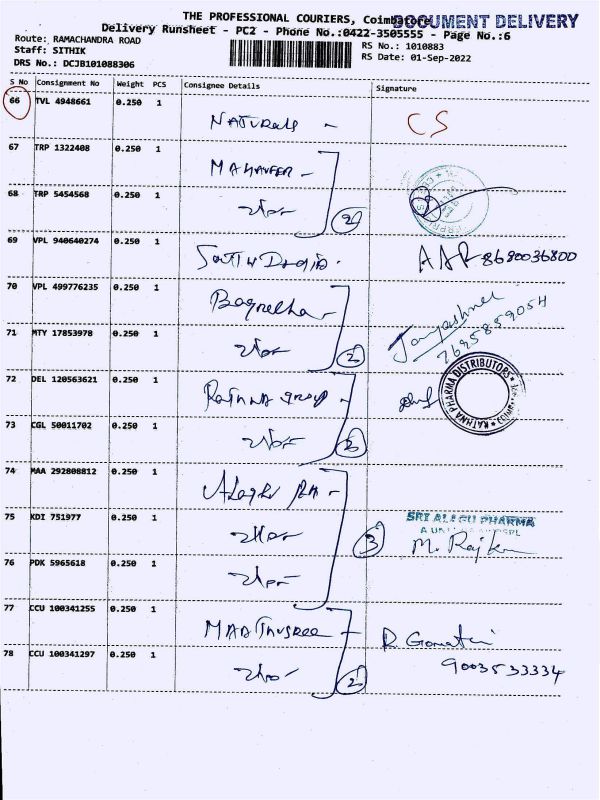 THE PROFESSIONAL COURIERS, Coimbatore
DOCUMENT DELIVERY
Delivery Runsheet - PC2 - Phone No.:0422-3505555 - Page No.:6
Route: RAMACHANDRA ROAD
RS No.: 1010883
Staff: SITHIK
RS Date: 01-Sep-2022
DRS No.: DCJB101088306
S No Consignment No Weight PCS Consignee Details Signature
66 TVL 4948661 0.250 1
NATURALS - CS
67 TRP 1322408 0.250 1
MAHAVEER -
68 TRP 5454568 0.250 1
2
69 VPL 940640274 0.250 1
SOUTH INDIA. AAR 8680036800
70 VPL 499776235 0.250 1
71 MTY 17853978 0.250 1
7695859054
2
72 DEL 120563621 0.250 1
RATHNA GROUP -
RATHNA PHARMA DISTRIBUTORS
73 CGL 50011702 0.250 1
74 MAA 292808812 0.250 1
75 KDI 751977 0.250 1
SRI ALAGU PHARMA
3
M. Rajk
76 PDK 5965618 0.250 1
77 CCU 100341255 0.250 1
R. Gomathi
78 CCU 100341297 0.250 1
9003533334
2